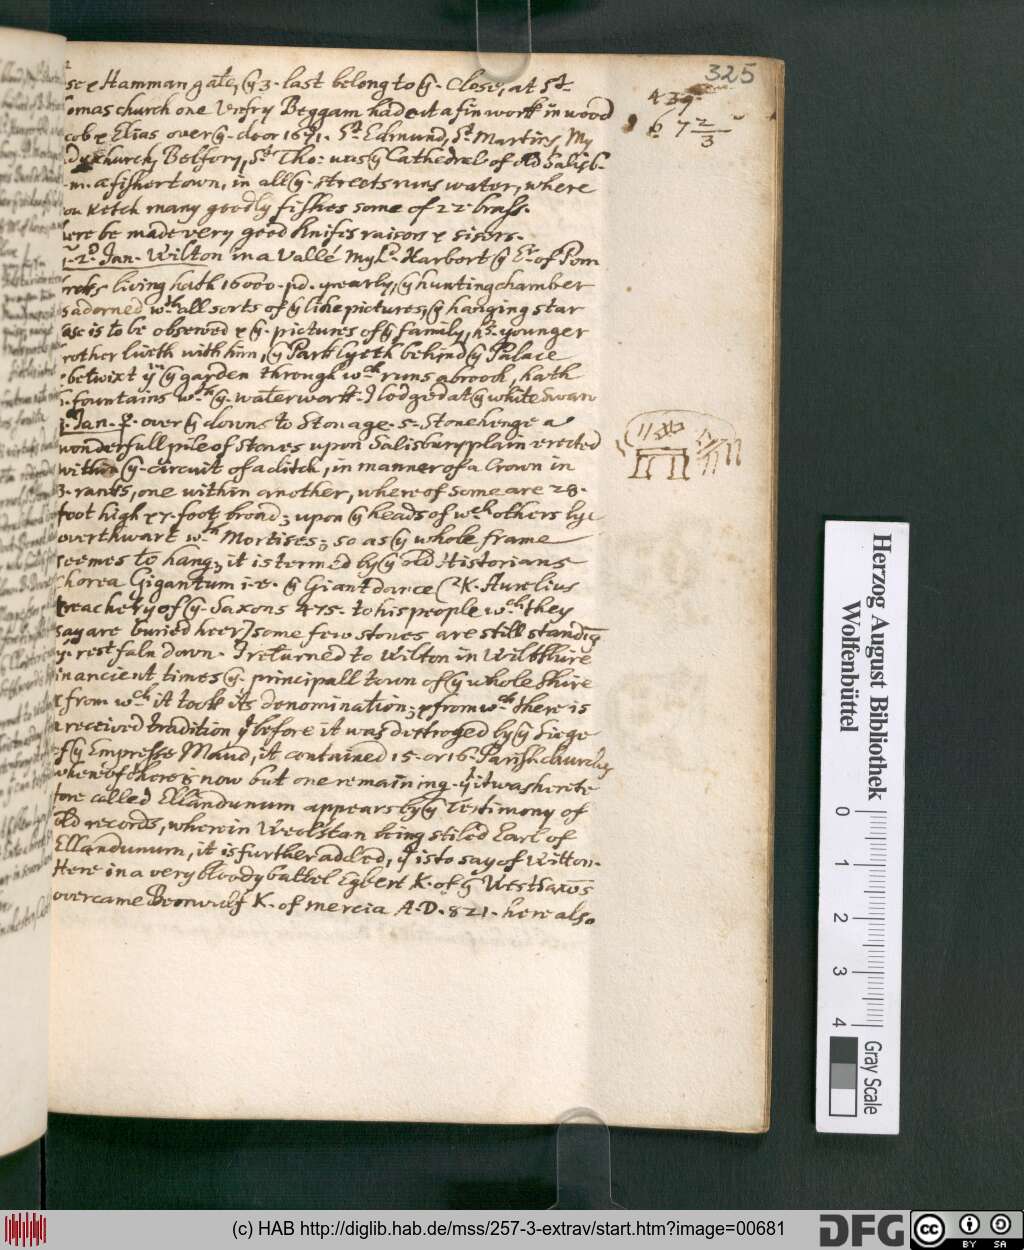 325
439
6 7 2/3
se & Hamman gate, ye 3. last belong to ye. Close, at St.
omas church one Vnfry Beggam had cut a fin work in wood
cob & Elias over ye. door 1671. St. Edmund, St. Martins, My
dy church, Belfory, St. Tho: was ye Cathedral of old Salisb.
m. a fishertown, in all ye. streets runs water, where
ou ketch many goodly fishes some of 22 brass.
here be made very good knifis raisors & sisers.
2. Jan. Wilton in a Vallé My Ld. Harbort ye Er. of Pom
rocks living hath 16000. pd. yearly, ye hunting chamber
s adorned wth all sorts of ye like pictures, ye hanging star
ase is to be observed & ye. pictures of ye family, his younger
rother liveth with him, ye Park lyeth behind ye Palace
betwixt ym ye garden through wch runs a brook, hath
fountains wth ye. waterwork. I lodged at ye white Swan
Jan. ♀. over ye downs to Stonage. s. Stonehenge a
wonderfull pile of Stones upon Salisbury plain erected
within ye. circuit of a ditch, in manner of a Crown in
3. ranks, one within another, where of some are 28.
foot high & 7. foot broad; upon ye heads of wch others lye
overthwart wth Mortises; so as ye whole frame
seemes to hang; it is termed by ye old Historians
Chorea Gigantum i.e. ye Giant dance (K. Aurelius
treachery of ye. Saxons 475. to his people wch they
say are buried heer) some few stones are still standig
ye. rest faln down. I returned to Wilton in Wiltshire
in ancient times ye. principall town of ye whole Shire
& from wch it took its denomination; & from wch there is
a received tradition yt before it was destroyed by ye Siege
of ye Empresse Maud, it contained 15. or 16. Parish churches
whereof there is now but one remaining. yt it was herete
fore called Ellandunum appears by ye Testimony of
old records, wherein Weolstan being stiled Earl of
Ellandunum, it is further added, yt is to say of Wilton.
Here in a very bloody battel Egbert K. of ye Westsaxōs
overcame Beorwulf K. of Mercia A.D. 821. here also
Herzog August Bibliothek
Wolfenbüttel
0 1 2 3 4
Gray Scale
(c) HAB http://diglib.hab.de/mss/257-3-extrav/start.htm?image=00681
DFG
cc
BY SA